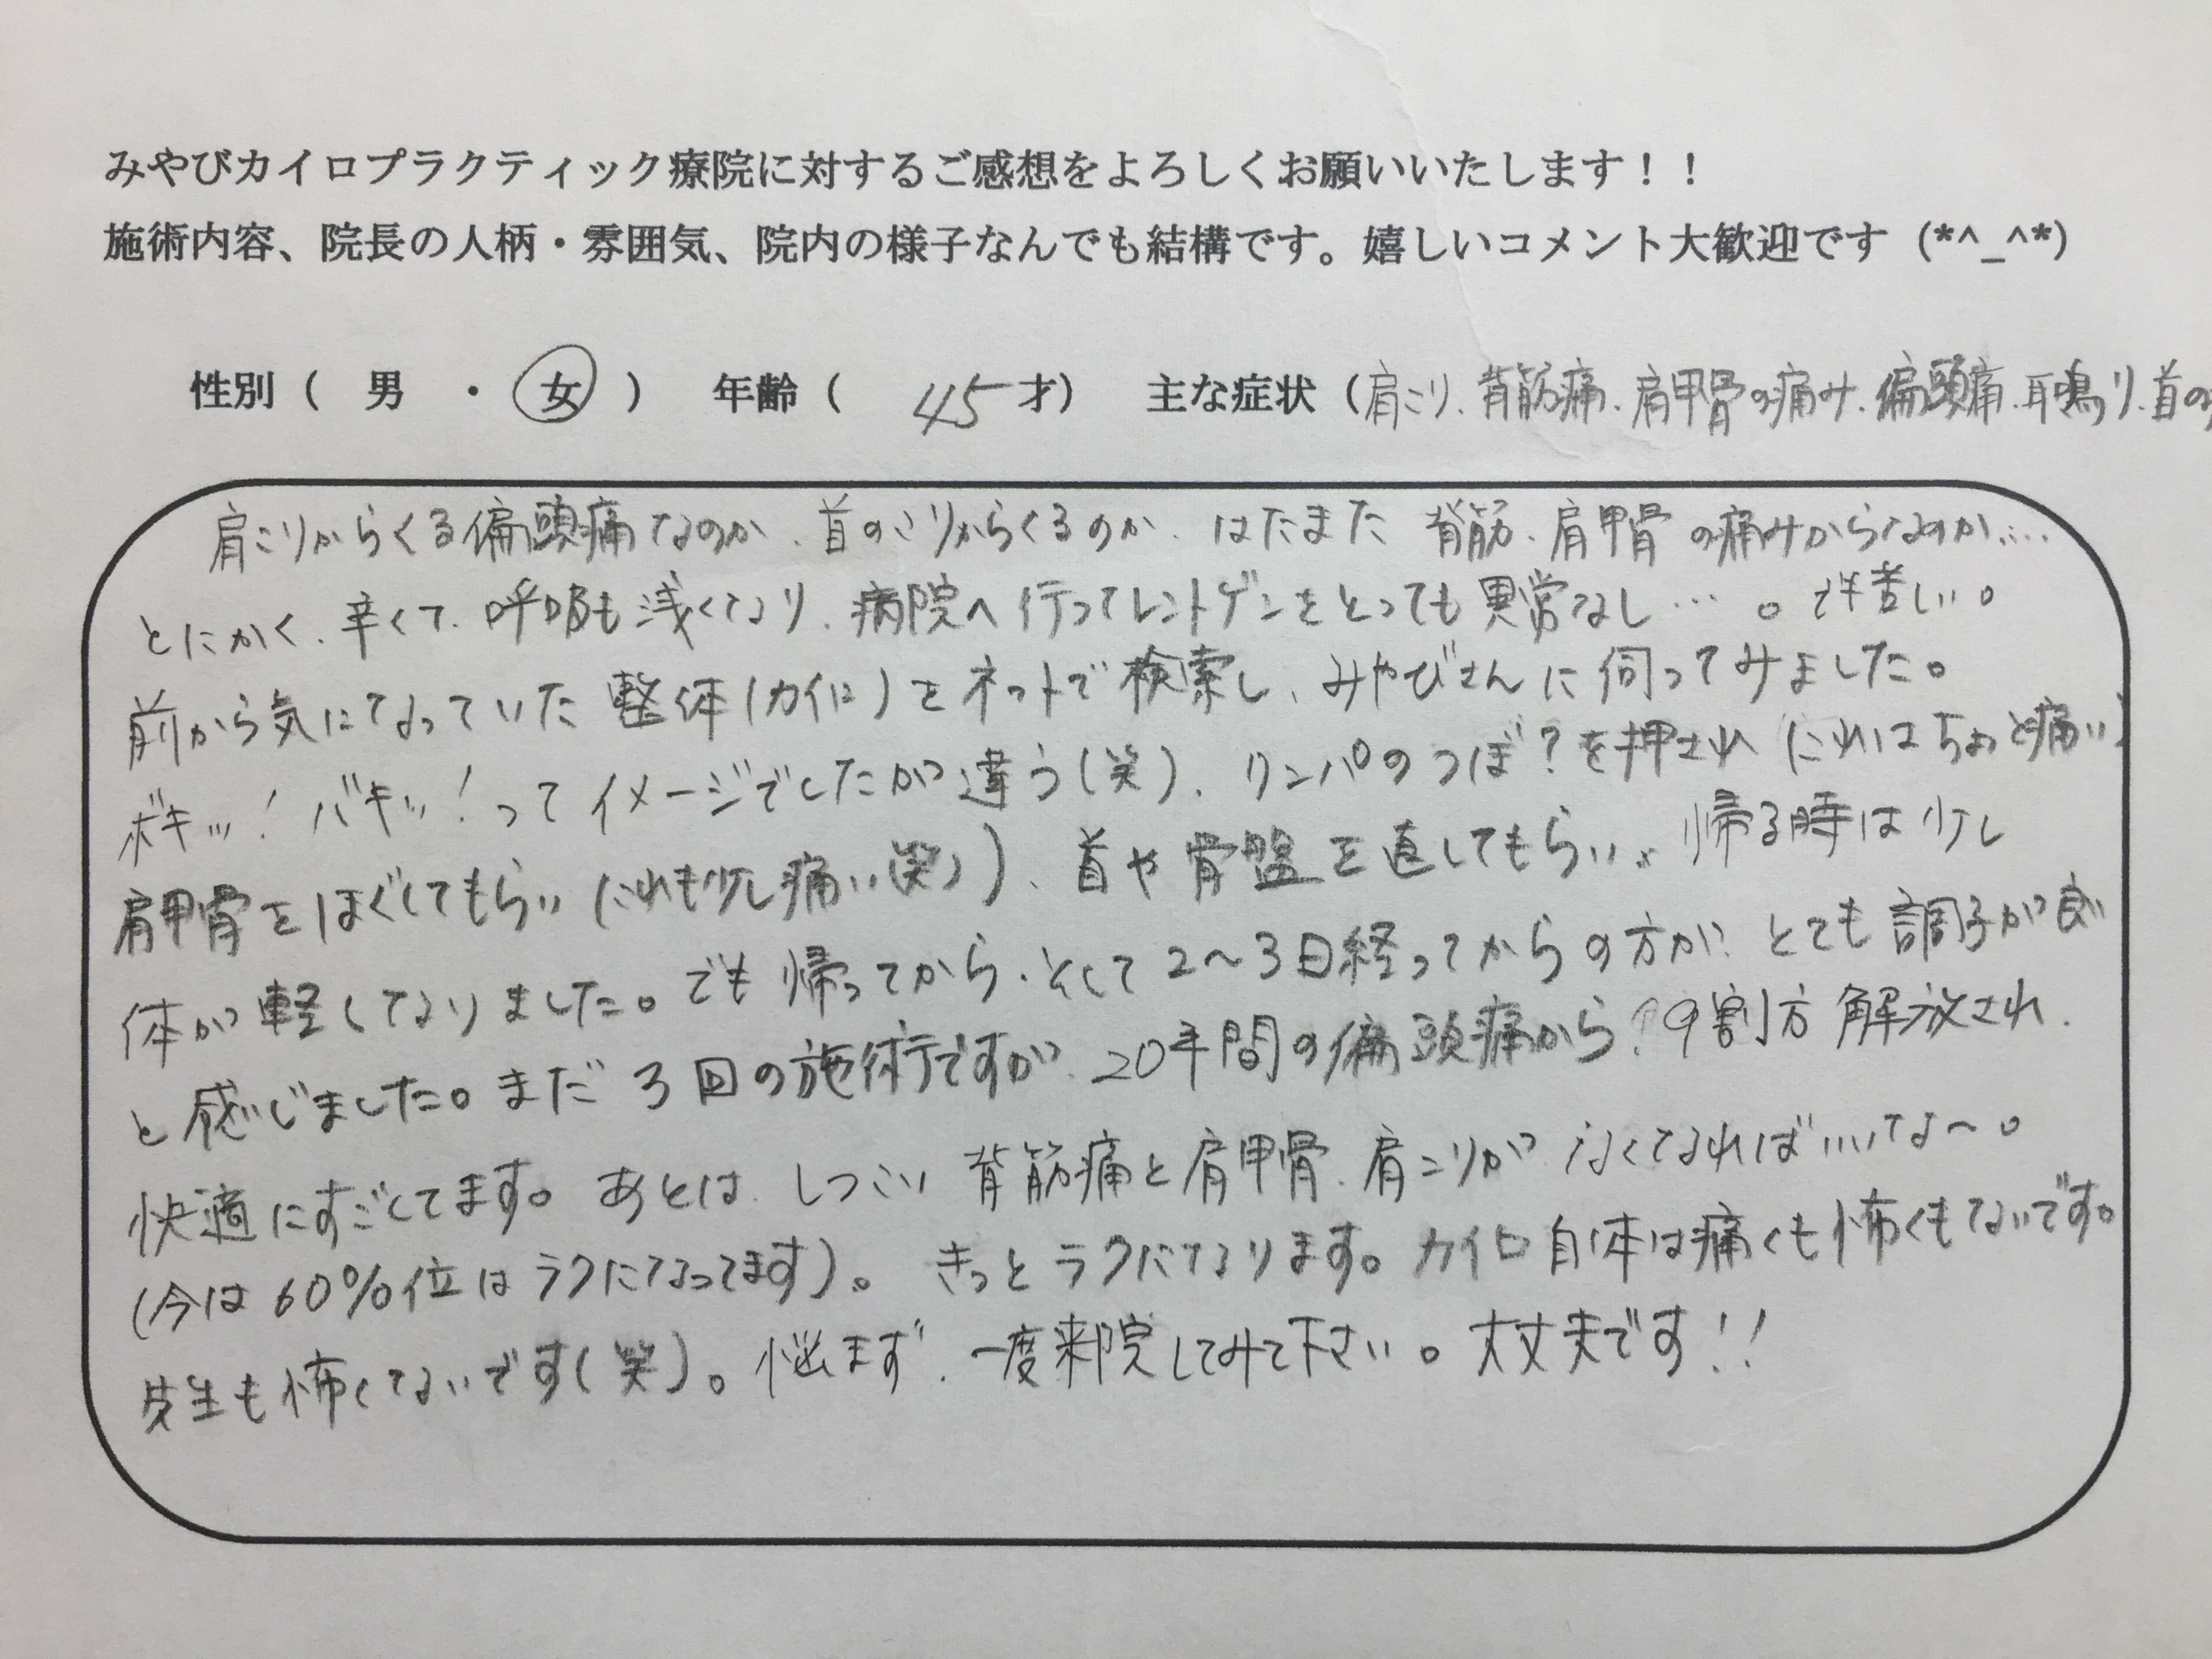 みやびカイロプラクティック療院に対するご感想をよろしくお願いいたします！！
施術内容、院長の人柄・雰囲気、院内の様子なんでも結構です。嬉しいコメント大歓迎です（*^_^*）
性別（　男　・　女　）　年齢（　45才）　主な症状（肩こり、背筋痛、肩甲骨の痛み、偏頭痛、耳鳴り、首の
肩こりからくる偏頭痛なのか、首のこりからくるのか、はたまた 背筋、肩甲骨の痛みからなのか…
とにかく、辛くて、呼吸も浅くなり、病院へ行ってレントゲンをとっても異常なし…。苦しい。
前から気になっていた整体(カイロ)をネットで検索し、みやびさんに伺ってみました。
ボキッ！バキッ！ってイメージでしたが違う(笑)、リンパのつぼ？を押され(これはちょっと痛い)
肩甲骨をほぐしてもらい(これも少し痛い(笑))、首や骨盤を直してもらい、帰る時は少し
体が軽くなりました。でも帰ってから、そして2～3日経ってからの方が、とても調子が良い
と感じました。まだ3回の施術ですが、20年間の偏頭痛から 9割方解放され、
快適にすごしてます。あとは、しつこい背筋痛と肩甲骨、肩こりが なくなればいいな～。
(今は60%位はラクになってます)。きっとラクになります。カイロ自体は痛くも怖くもないです。
先生も怖くないです(笑)。悩まず、一度来院してみて下さい。大丈夫です！！